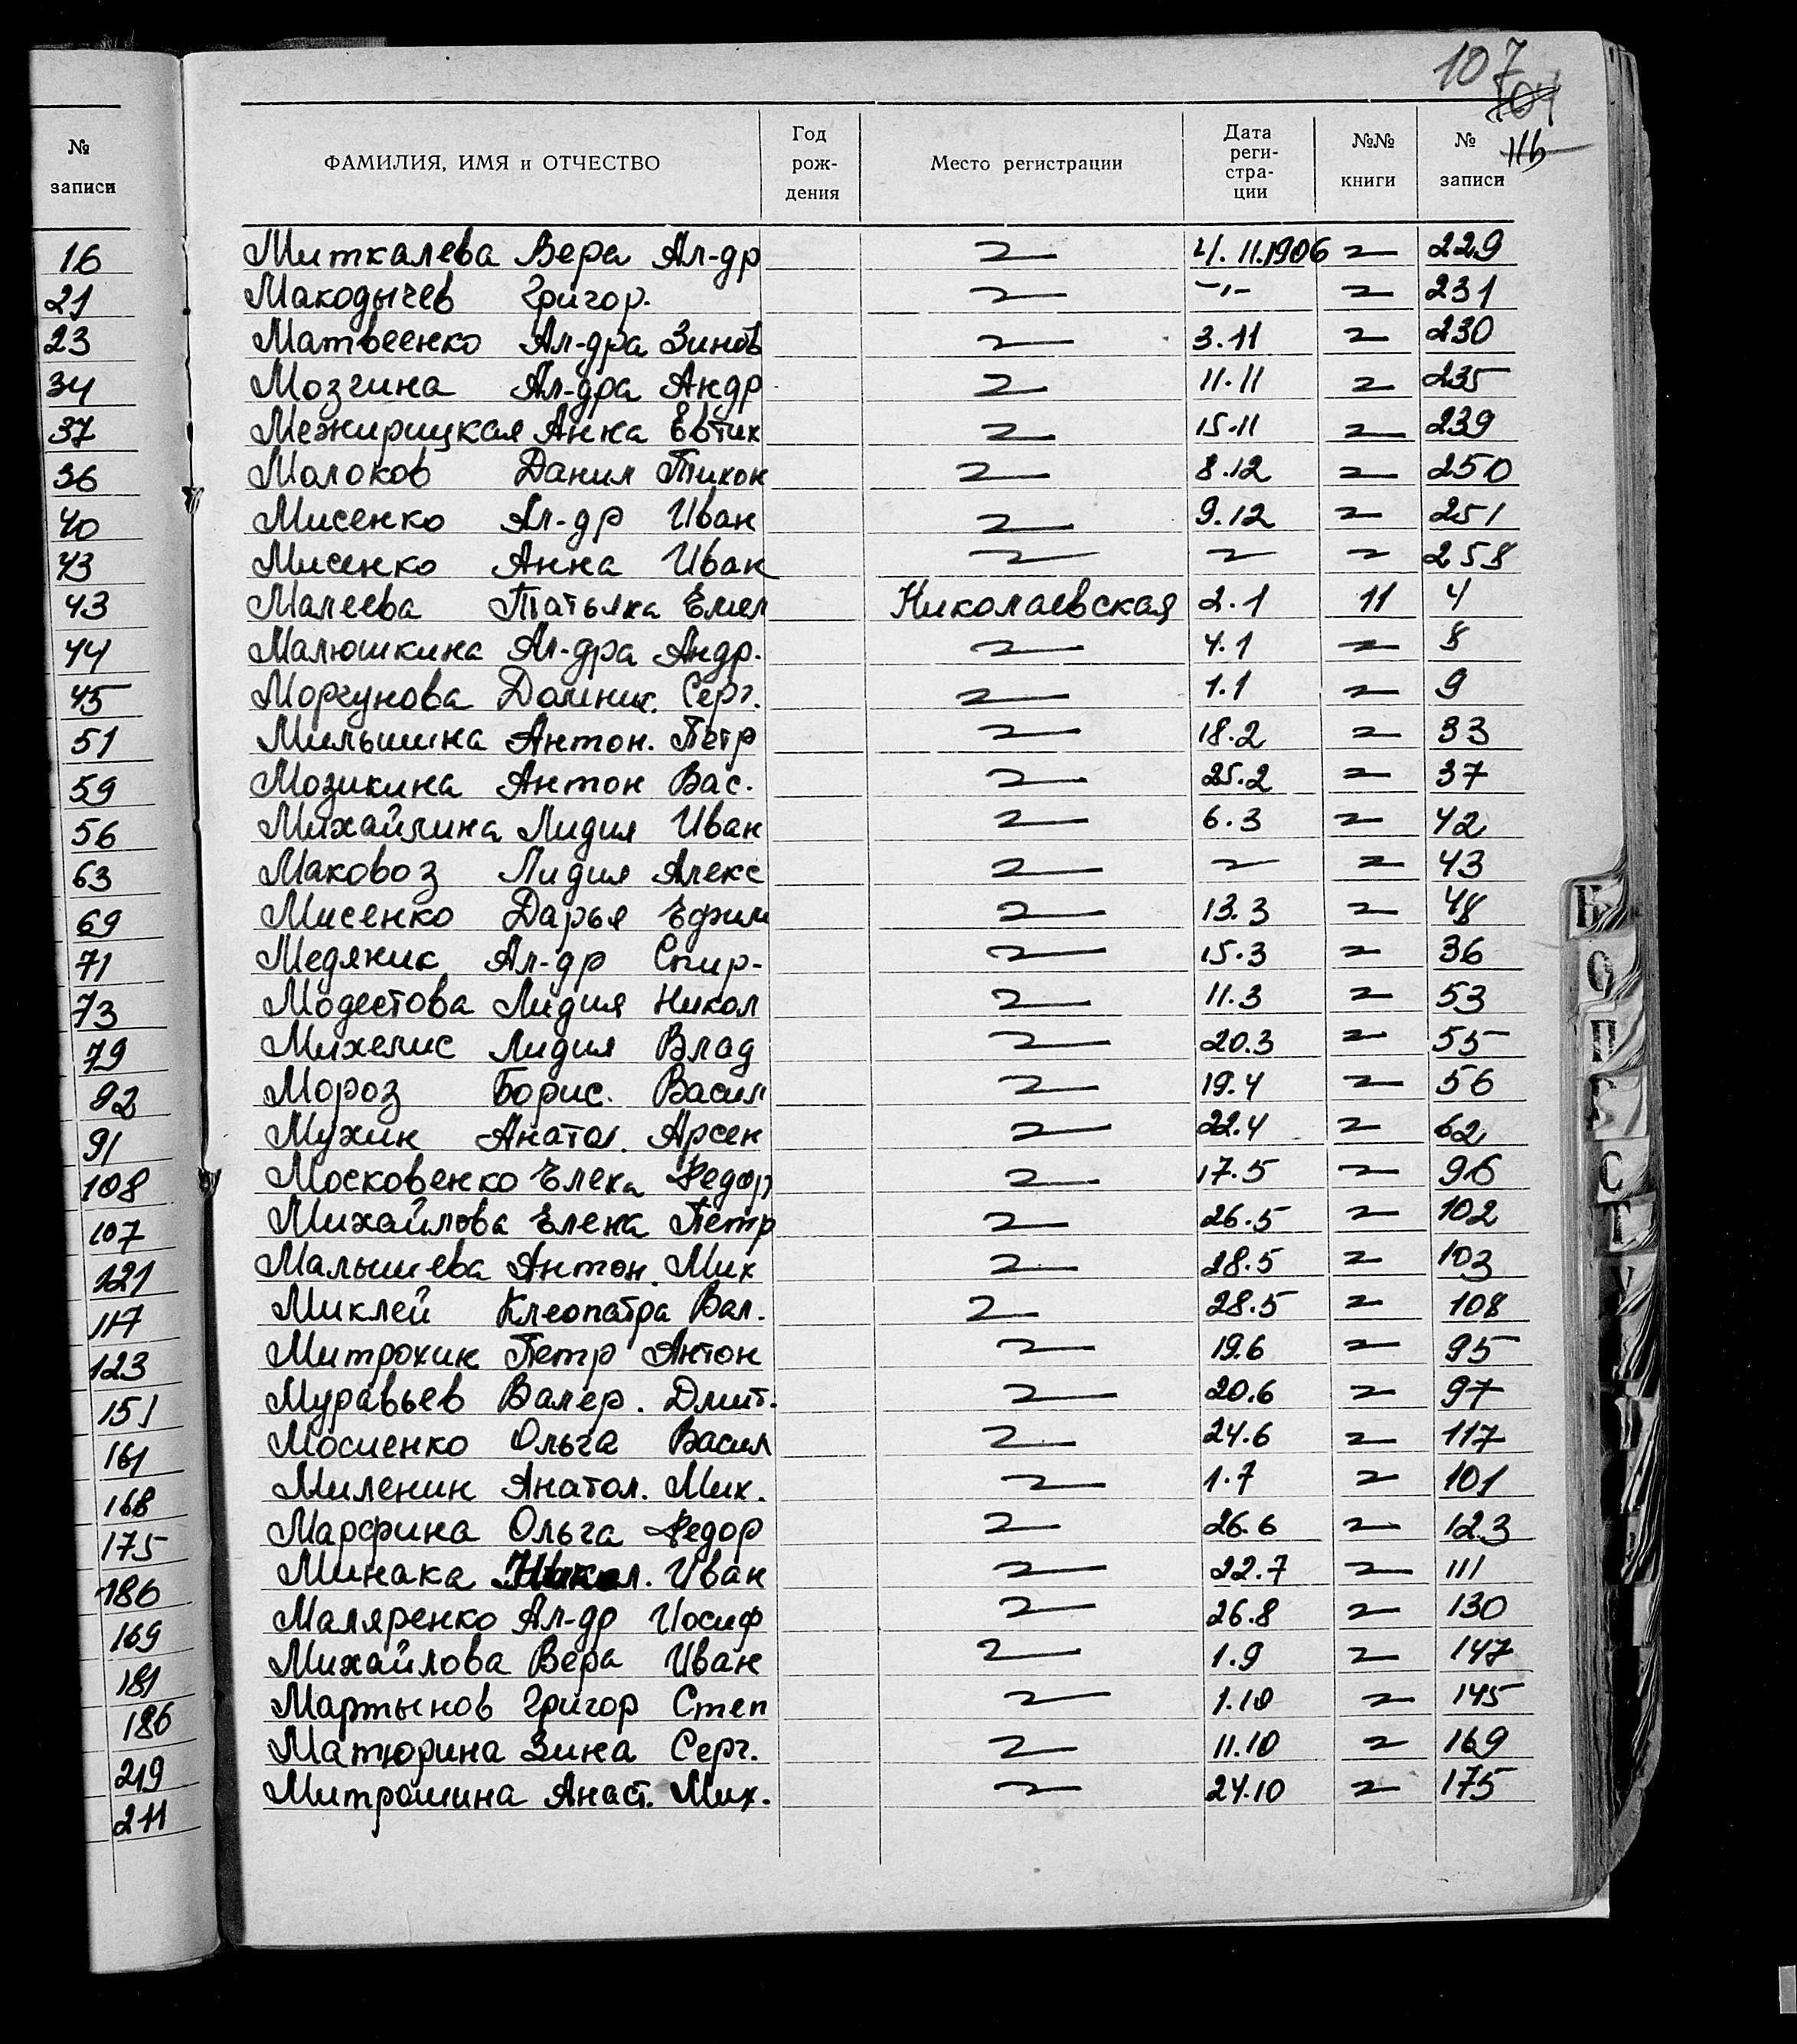 107
104
116
№ записи
ФАМИЛИЯ, ИМЯ и ОТЧЕСТВО Год рож- дения Место регистрации Дата реги- стра- ции №№ книги № записи
16 Миткалева Вера Ал-др 〃 4.11.1906 〃 229
21 Макодычев Григор. 〃 -〃- 〃 231
23 Матвеенко Ал-дра Зинов 〃 3.11 〃 230
34 Мозгина Ал-дра Андр 〃 11.11 〃 235
37 Межирицкая Анна Евтих 〃 15.11 〃 239
36 Молоков Данил Тихон 〃 8.12 〃 250
40 Мисенко Ал-др Иван 〃 9.12 〃 251
43 Мисенко Анна Иван 〃 〃 〃 258
43 Малеева Татьяна Емел Николаевская 2.1 11 4
44 Малюшкина Ал-дра Андр. 〃 4.1 〃 8
45 Моргунова Домник. Серг. 〃 1.1 〃 9
51 Мильшина Антон. Петр 〃 18.2 〃 33
59 Мозикина Антон Вас. 〃 25.2 〃 37
56 Михайлина Лидия Иван 〃 6.3 〃 42
63 Маковоз Лидия Алекс 〃 〃 〃 43
69 Мисенко Дарья Ефим 〃 13.3 〃 48
71 Медяник Ал-др Спир- 〃 15.3 〃 36
73 Модестова Лидия Никол 〃 11.3 〃 53
79 Михелис Лидия Влад 〃 20.3 〃 55
92 Мороз Борис. Васил 〃 19.4 〃 56
91 Мухин Анатол. Арсен 〃 22.4 〃 62
108 Московенко Елена Федор 〃 17.5 〃 96
107 Михайлова Елена Петр 〃 26.5 〃 102
121 Малышева Антон. Мих 〃 28.5 〃 103
117 Миклей Клеопатра Вал. 〃 28.5 〃 108
123 Митрохин Петр Антон 〃 19.6 〃 95
151 Муравьев Валер. Дмит. 〃 20.6 〃 97
161 Мосиенко Ольга Васил 〃 24.6 〃 117
168 Миленин Анатол. Мих. 〃 1.7 〃 101
175 Марфина Ольга Федор 〃 26.6 〃 123
186 Минака Никол. Иван 〃 22.7 〃 111
169 Маляренко Ал-др Иосиф 〃 26.8 〃 130
181 Михайлова Вера Иван 〃 1.9 〃 147
186 Мартынов Григор Степ 〃 1.10 〃 145
219 Матюрина Зина Серг. 〃 11.10 〃 169
211 Митрошина Анаст. Мих. 〃 24.10 〃 175
Н
О
П
С
Т
У